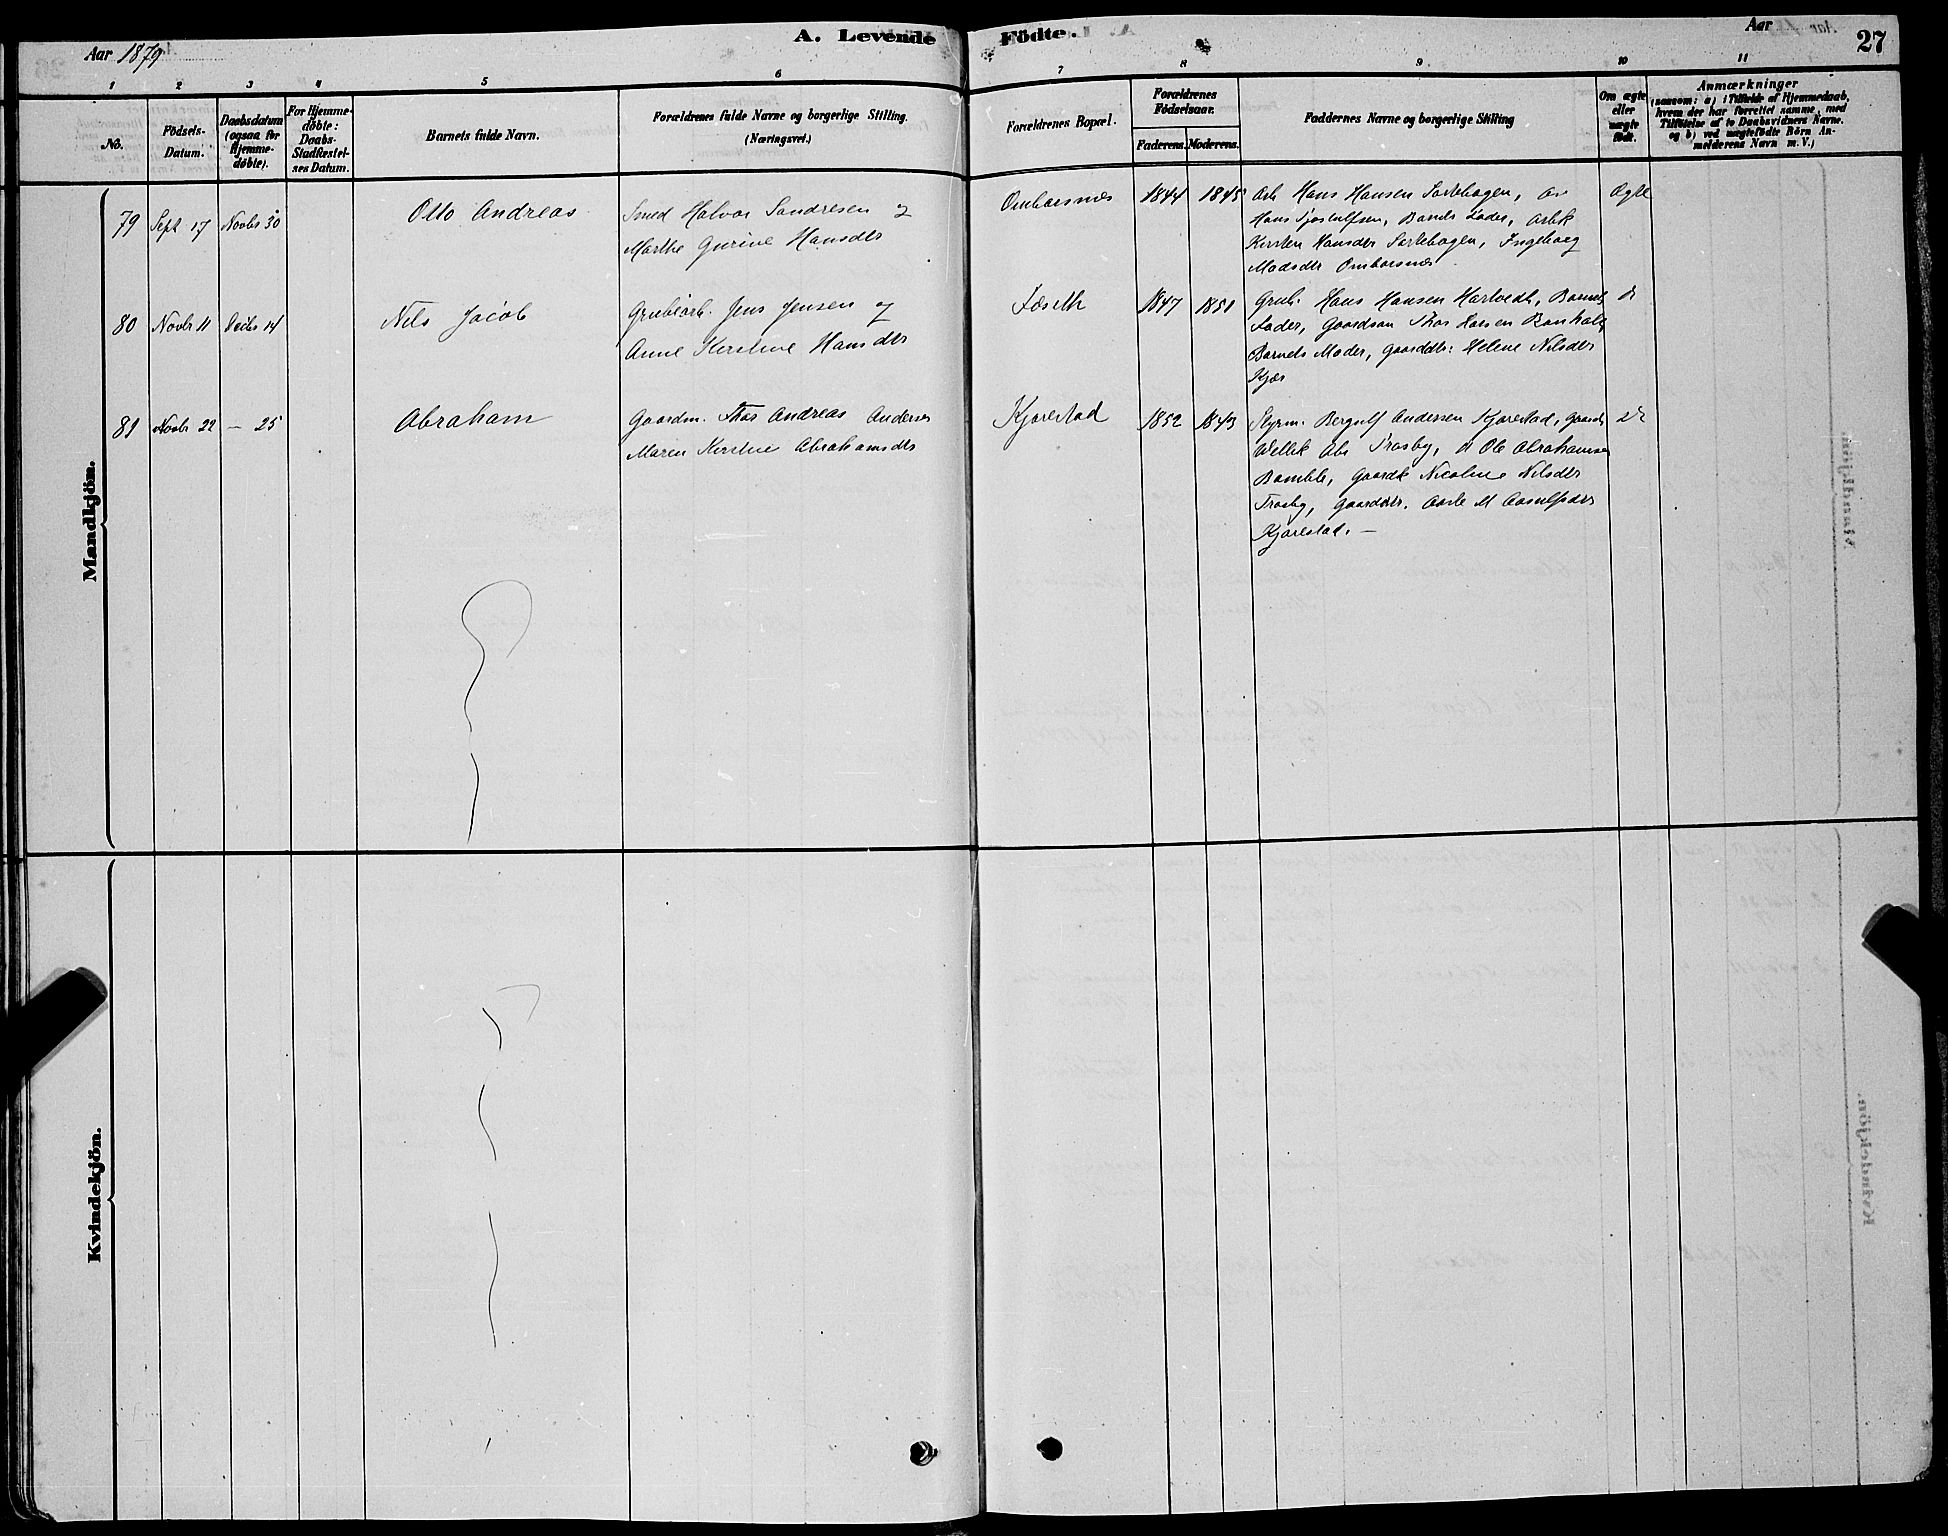 Aar 1879
A. Levende Födte.
Aar
27
1 2 3 4 5 6 7 8 9 10 11
No.
Födsels-
Datum.
Daabsdatum
(ogsaa för
Hjemme-
döbte).
For Hjemme-
döbte:
Daabs-
Stadfæstel-
ses Datum.
Barnets fulde Navn.
Forældrenes fulde Navne og borgerlige Stilling.
(Næringsvei.)
Forældrenes Bopæl.
Forældrenes
Födselsaar.
Faderens. Moderens.
Faddernes Navne og borgerlige Stilling
Om ægte
eller
uægte
födt.
Anmærkninger
(saasom: a) i Tilfælde af Hjemmedaab,
hvem der har forrettet samme, med
Tilföielse af to Daabsvidners Navne.
og b) ved uægtefödte Börn An-
melderens Navn m. V.)
Mandkjön.
79 Sept 17 Novbr 30 Otto Andreas Smed Halvor Sondresen og
Marthe Gurine Hansdtr
Omborsnæs 1844 1845 Arb Hans Hansen Sortebogen,
Hans Bards Fader, Arbk
Kirsten Hansdtr Sortebogen, Ingeborg
Madsdtr Omborsnæs
Ægte
80 Novbr 11 Decbr 14 Nils Jacob Grubearb. Jens Jensen og
Anne Kirstine Hansdtr
1847 1851 Grub. Hans Hansen Barnets
Fader, Gaardsøn Thor Hansen
Barnets Moder, Gaarddtr: Helene Nilsdtr
Kjær
d
81 Novbr 22 — 25 Abraham Gaardm. Thor Andreas Andersen
Maren Kirstine Abrahamsdtr
Kjørestad 1852 1843 Styrm. Bergulf Andersen Kjørestad, Gaardm
Trosby, d Ole Abrahamsen
Bamble, Gaardk Nicoline Nilsdtr
Trosby, Gaarddtr. M
Kjørestad. —
Kvindekjön.